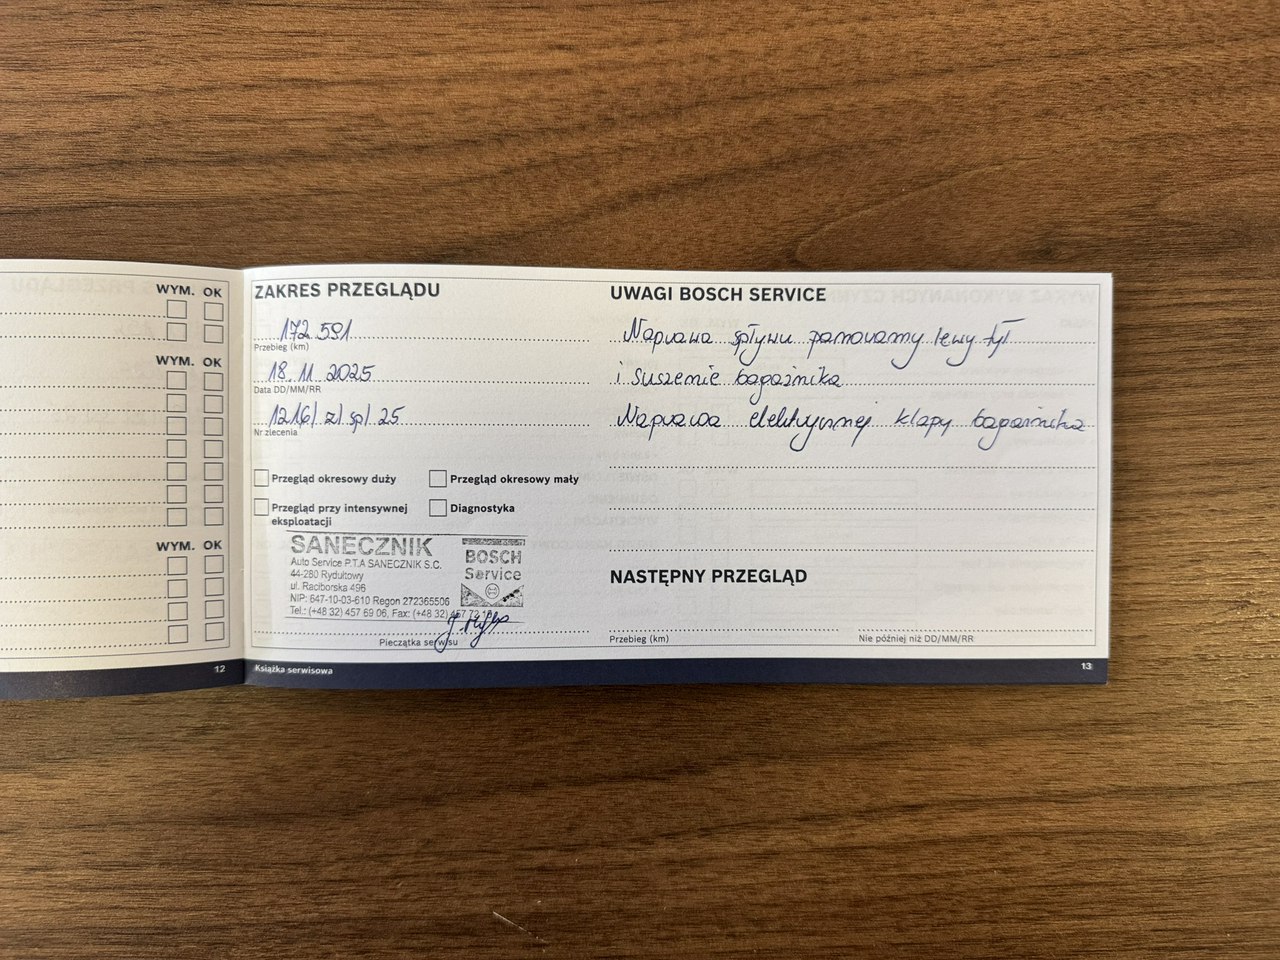 WYM. OK
WYM. OK
WYM. OK
12
ZAKRES PRZEGLĄDU
172 591
Przebieg (km)
18.11.2025
Data DD/MM/RR
1216/z/sp/25
Nr zlecenia
Przegląd okresowy duży
Przegląd okresowy mały
Przegląd przy intensywnej
eksploatacji
Diagnostyka
SANECZNIK
Auto Service P.T.A SANECZNIK S.C.
44-280 Rydułtowy
ul. Raciborska 496
NIP: 647-10-03-610 Regon 272365506
Tel.: (+48 32) 457 69 06, Fax: (+48 32) 457 73
BOSCH
Service
Pieczątka serwisu
Książka serwisowa
UWAGI BOSCH SERVICE
Naprawa spływu panoramy lewy tył
i suszenie bagażnika
Naprawa elektrycznej klapy bagażnika
NASTĘPNY PRZEGLĄD
Przebieg (km)
Nie później niż DD/MM/RR
13